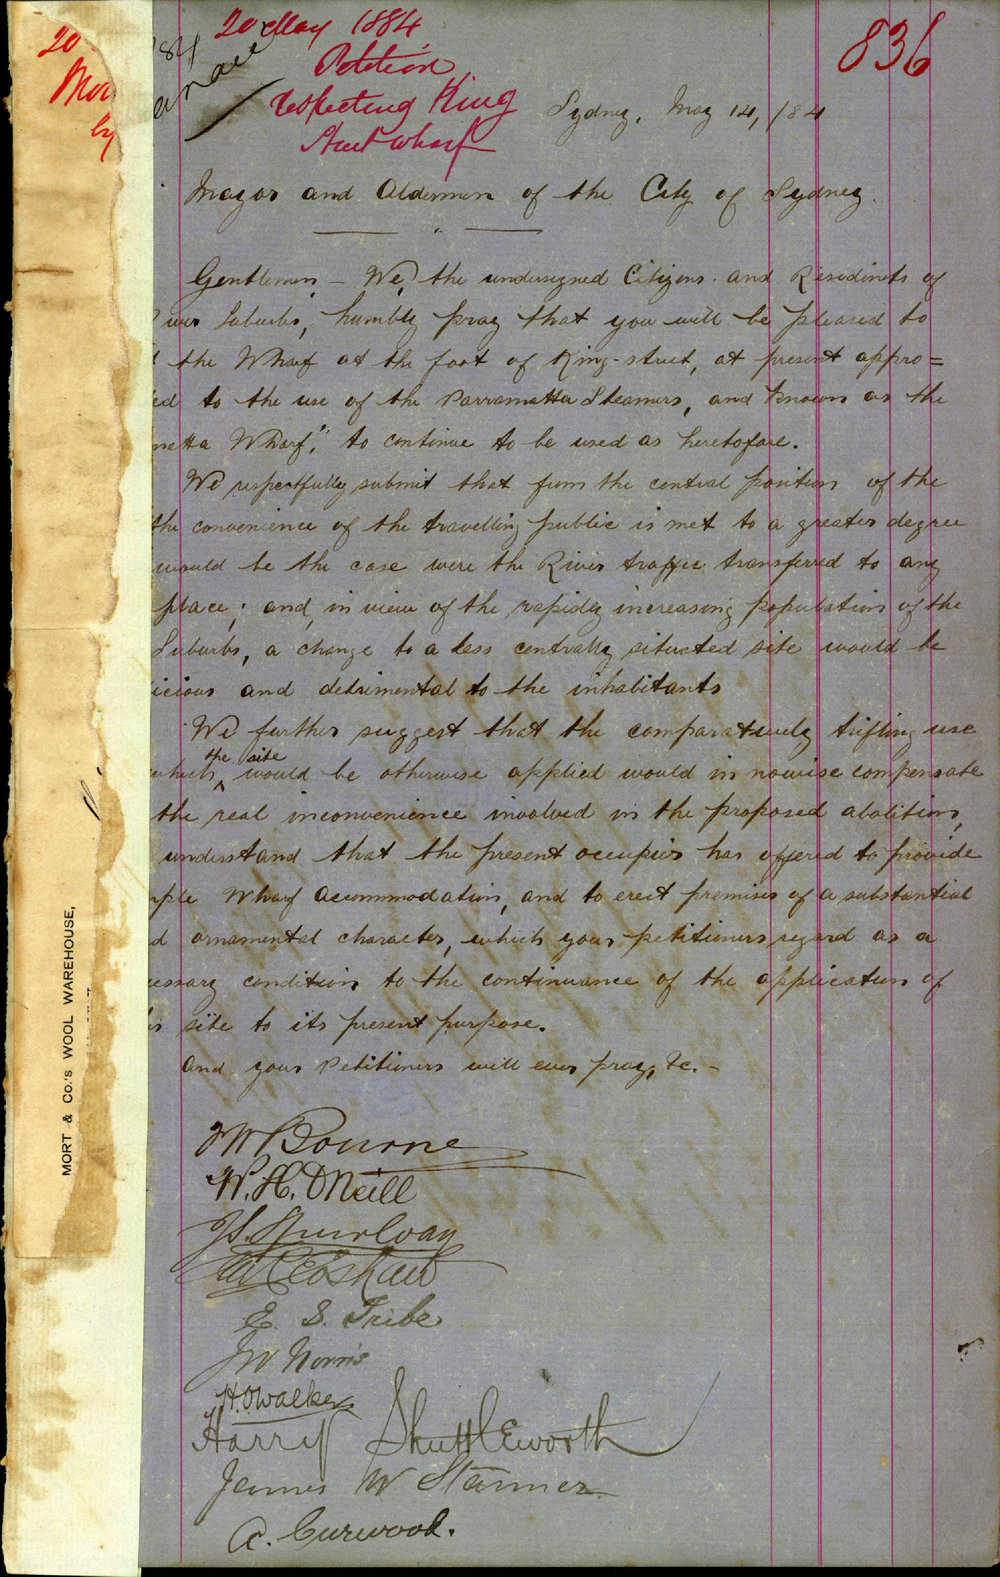 20 May 1884
Petition
respecting King
Street Wharf
836
20
84
Sydney, May 14, 184
Mayor and Aldermen of the City of Sydney.
Gentlemen – We, the undersigned Citizens and Residents of
Suburbs, humbly pray that you will be pleased to
the Wharf at the foot of King-street, at present appro=
ed to the use of the Parramatta Steamers, and known as the
matta Wharf," to continue to be used as heretofore.
We respectfully submit that from the central position of the
the convenience of the travelling public is met to a greater degree
would be the case were the River traffic transferred to any
place; and, in view of the rapidly increasing population of the
Suburbs, a change to a less centrally situated site would be
icious and detrimental to the inhabitants
We further suggest that the comparatively trifling use
the site
which, would be otherwise applied would in nowise compensate
the real inconvenience involved in the proposed abolition,
understand that the present occupier has offered to provide
mple Wharf accommodation, and to erect premises of a substantial
d ornamental character, which your petitioners regard as a
cessary condition to the continuance of the application of
is site to its present purpose.
And your Petitioners will ever pray, &c. –
Bourne
W. H. O'Neill
E. S. Tribe
Jno Norris
H. O. Walker
Harry Shuttleworth
James W Stanner
A. Curwood.
MORT & Co.'s WOOL WAREHOUSE,